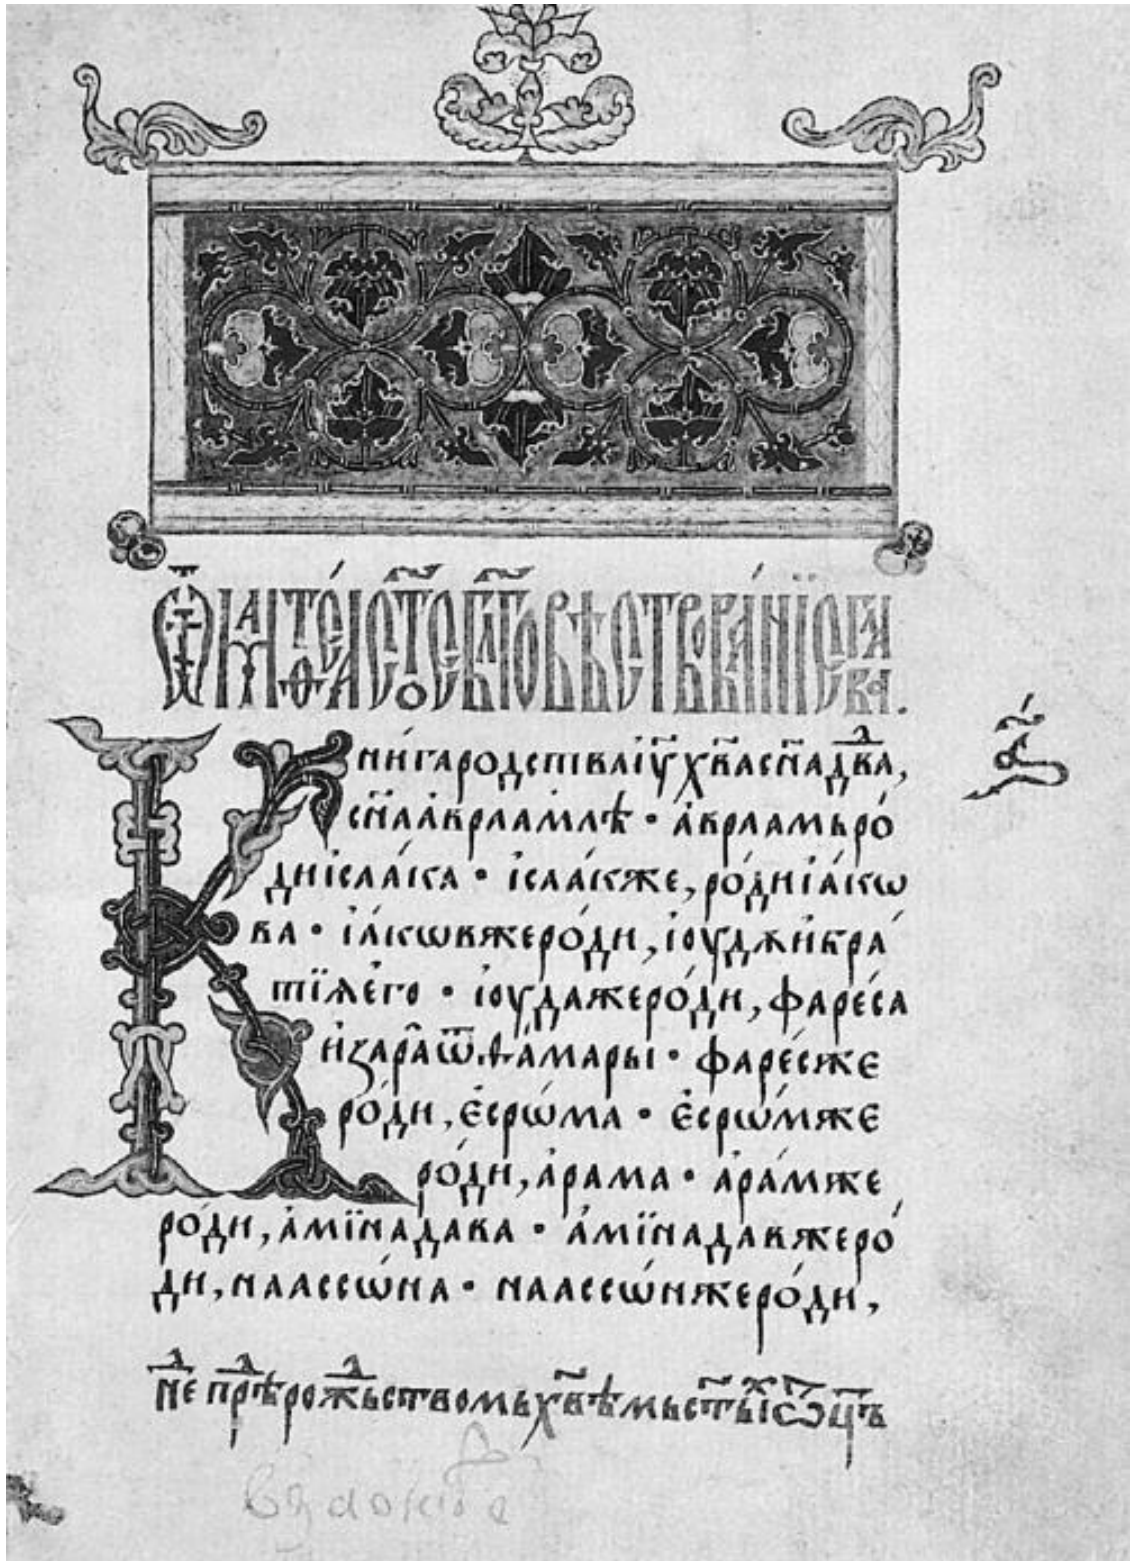 Ѿ маⷴѳеа ст҃ое бл҃говѣствованїе глава.
Книга родства іу҃ хв҃а сн҃а дв҃да,
сн҃а авраамлѣ · авраамь ро́
ди ісаа́ка · ісаа́к же, ро́ди іа́кѡ
ва · іа́кѡв же ро́ди, іоудѫ и бра́
тїѧ его · іоуда же ро́ди, фаре́са
и зара ѿ ѳа́мары · фаре́с же
ро́ди, есрѡ́ма · есрѡ́м же
ро́ди, арама · ара́м же
ро́ди, амїнадава · амїнадав же ро́
ди, наассѡ́на · наассѡ́н же ро́ди,
не прⷣѣ рожⷣьством ь хв҃ѣмь ст҃ыⷯ ѿц҃ъ